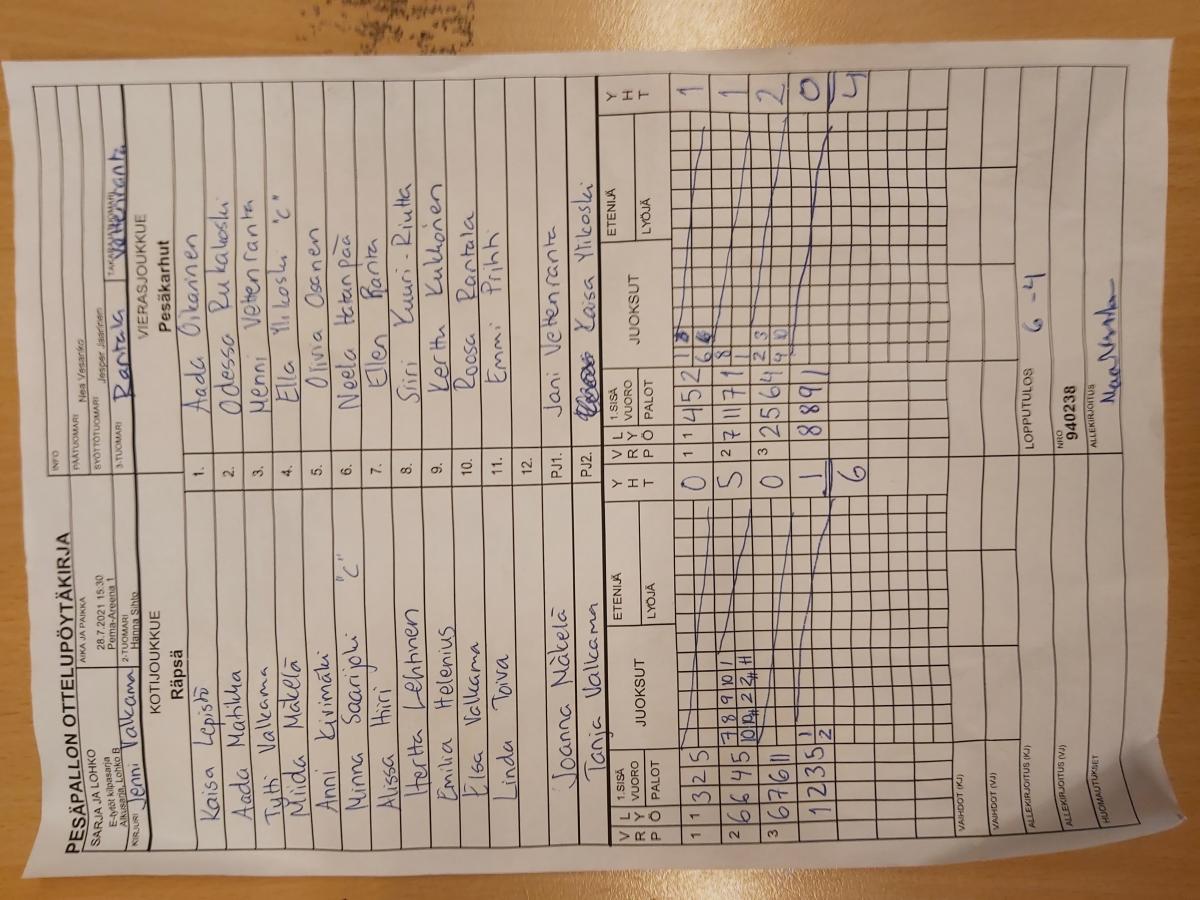 PESÄPALLON OTTELUPÖYTÄKIRJA
SARJA JA LOHKO
E-tytöt kilpasarja
Alkusarja, Lohko B
AIKA JA PAIKKA
28.7.2021 15:30
Pema-Areena 1
INFO
PÄÄTUOMARI Nea Vesanko
SYÖTTÖTUOMARI Jesper Jaarinen
KIRJURI Jenni Valkama
2-TUOMARI Hanna Sihto
3-TUOMARI Rantala
TAKARAJATUOMARI Vettenranta
KOTIJOUKKUE VIERASJOUKKUE
Räpsä Pesäkarhut
Kaisa Lepistö 1. Aada Oikarinen
Aada Matikka 2. Odessa Rukakoski
Tytti Valkama 3. Menni Vettenranta
Miida Mäkelä 4. Ella Ylikoski "C"
Anni Kivimäki 5. Olivia Osanen
Minna Saarijoki "C" 6. Neela Hatanpää
Alissa Hiiri 7. Ellen Ranta
Hertta Lehtinen 8. Siiri Kuuri-Riutta
Emilia Helenius 9. Kerttu Kukkonen
Elsa Valkama 10. Roosa Rantala
Linda Toiva 11. Emmi Prihti
12.
Joanna Mäkelä PJ1. Jani Vettenranta
Tanja Valkama PJ2. Kaisa Ylikoski
V R P L Y Ö 1.SISÄ VUORO PALOT JUOKSUT ETENIJÄ LYÖJÄ Y H T V R P L Y Ö 1.SISÄ VUORO PALOT JUOKSUT ETENIJÄ LYÖJÄ Y H T
1 1 3 2 5 0 1 1 4 5 2 1 6 1
2 6 6 4 5 7 8 9 10 1 5 2 7 11 7 1 8 1 1
3 6 7 6 11 0 3 2 5 6 4 2 3 4 10 2
1 2 3 5 1 2 1 8 8 9 1 0
6 4
VAIHDOT (KJ)
VAIHDOT (VJ)
ALLEKIRJOITUS (KJ) LOPPUTULOS 6 - 4
ALLEKIRJOITUS (VJ) NRO 940238
HUOMAUTUKSET ALLEKIRJOITUS